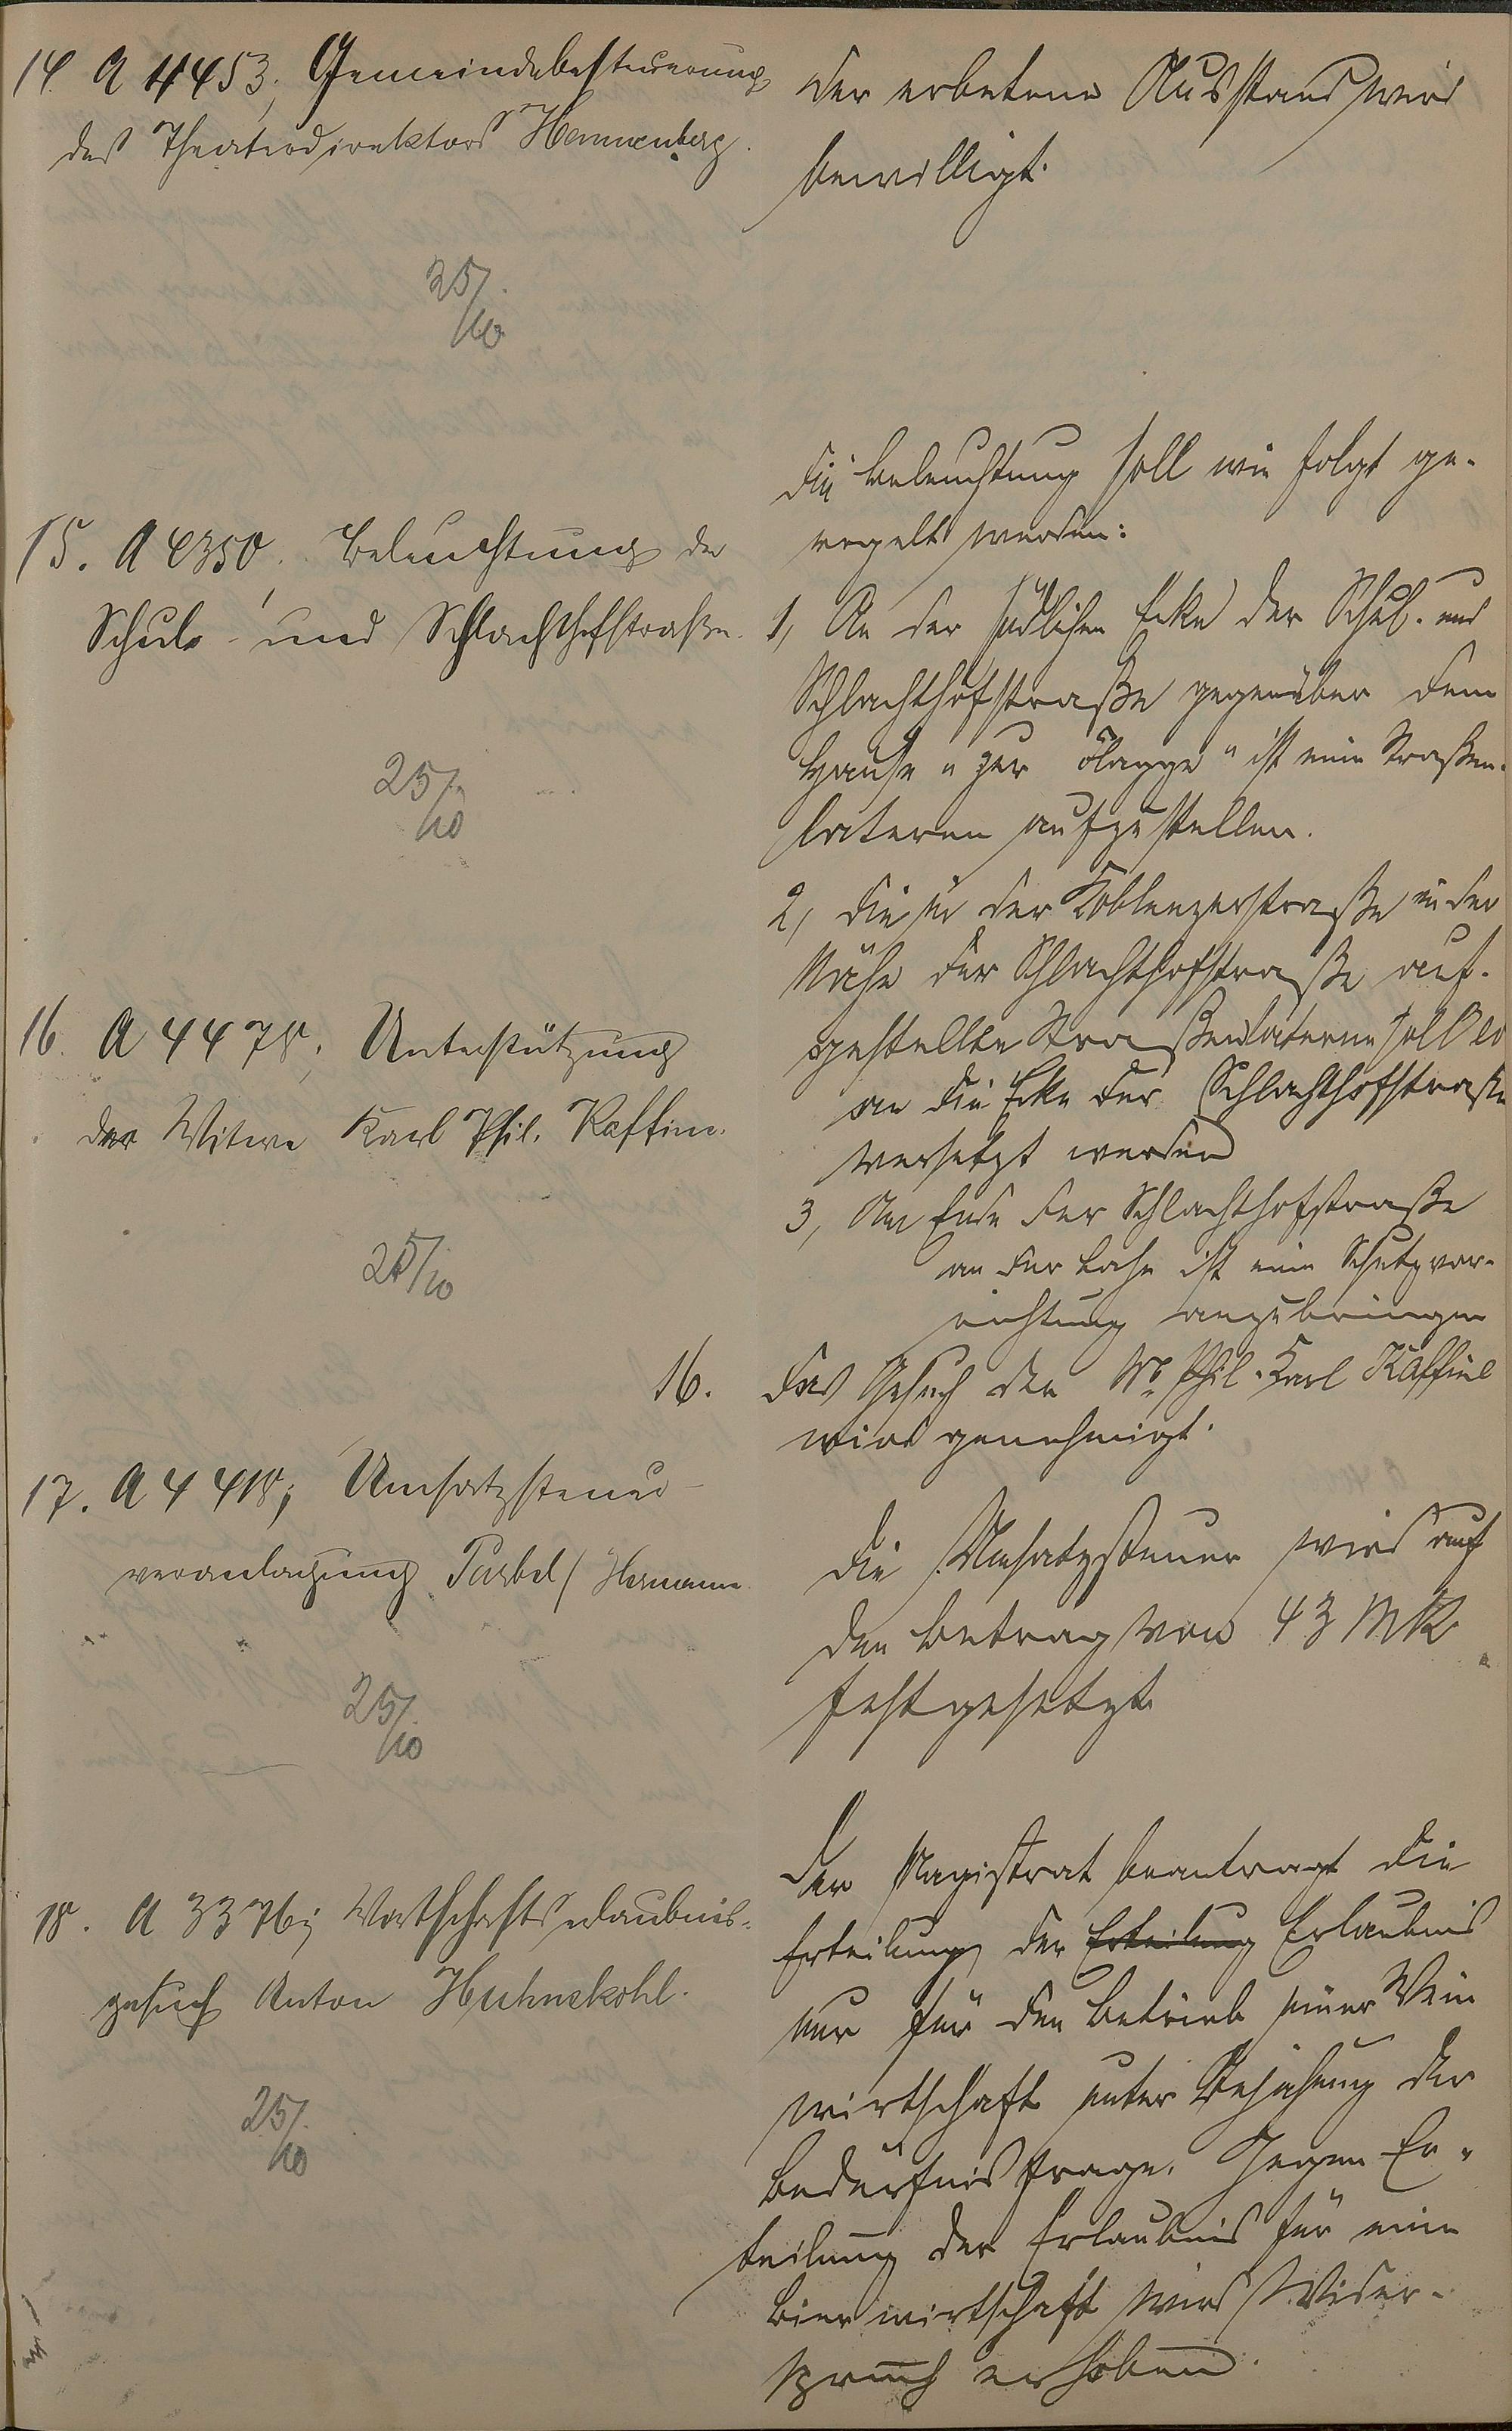 14. A 4453, Gemeindebesteuerung
des Theaterdirektors Hannenberg.
25/10
Der erbetene Ausstand wird
bewilligt.
15. A 4350, Beleuchtung der
Schul- und Schlachthofstraße.
25/10
Die Beleuchtung soll wie folgt ge-
regelt werden:
1, An der südlichen Ecke der Schul- und
Schlachthofstraße gegenüber dem
Hause "zur " ist eine Straßen-
laterne aufzustellen.
2, Die in der Koblenzerstraße in der
Nähe der Schlachthofstraße auf-
gestellte Straßenlaterne soll
an die Ecke der Schlachthofstraße
versetzt werden
3, Am Ende der Schlachthofstraße
an der Lahn ist eine Schutzvor-
richtung anzubringen
16. A 4478, Unterstützung
der Witwe Karl Phil. Kaffine.
25/10
16. Das Gesuch der Ww. Phil. Karl Kaffine
wird genehmigt.
17. A 4418; Umsatzsteuer-
veranlagung Parbel/Hermann
25/10
Die Umsatzsteuer wird auf
den Betrag von 43 MK.
festgesetzt.
18. A 3376; Wirtschaftserlaubnis-
gesuch Anton Huhnekohl.
25/10
Der Magistrat beantragt die
Erteilung der Erteilung Erlaubnis
nur für den Betrieb einer Wein
wirtschaft unter Bejahung der
Bedürfnisfrage. Gegen Er-
teilung der Erlaubnis für eine
Bierwirtschaft wird Wider-
spruch erhoben.